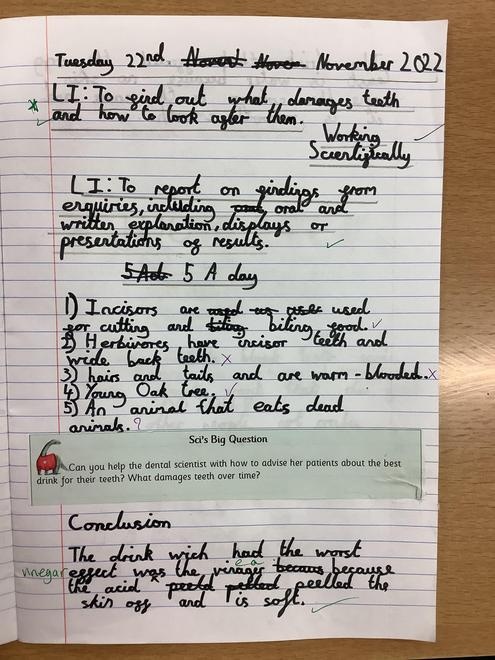 Tuesday 22nd. Novent Novem November 2022
LI: To find out what damages teeth
and how to look after them.
Working
Scientifically
LI: To report on findings from
enquiries, including oral and
written explanation, displays or
presentations of results.
5 Act 5 A day
1) Incisors are used us used used
for cutting and biting food.
2) Herbivores have incisor teeth and
wide back teeth. x
3) hairs and tails and are warm-blooded. x
4) Young Oak tree.
5) An animal that eats dead
animals. ?
Sci's Big Question
Can you help the dental scientist with how to advise her patients about the best
drink for their teeth? What damages teeth over time?
Conclusion
The drink wich had the worst
vinegar effect was the vinager becaus because
the acid peeld pelled peelled the
skin off and is soft.